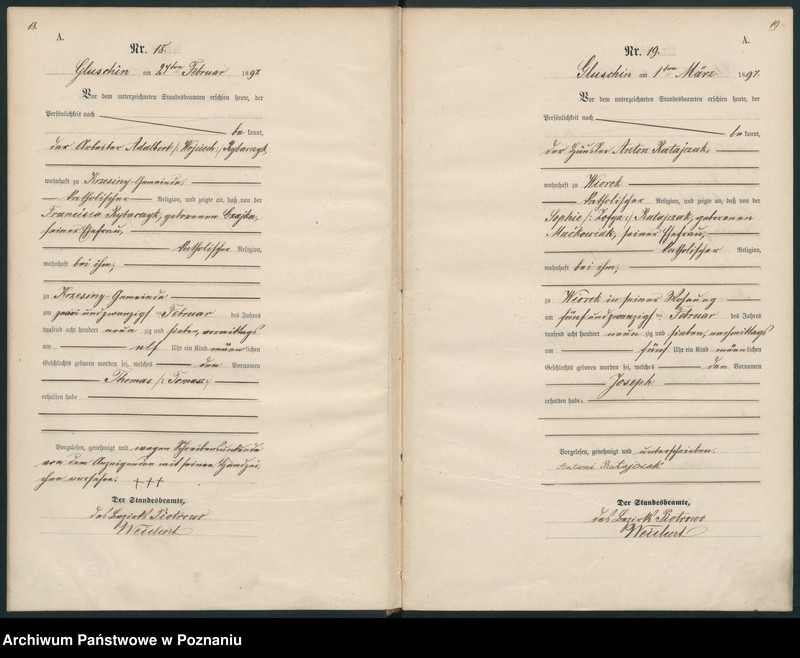 18.
A.
Nr. 18.
Gluschin am 27ten Februar 1897.
Vor dem unterzeichneten Standesbeamten erschien heute, der
Persönlichkeit nach
be kannt,
der Arbeiter Adalbert /: Wojciech :/ Rybarczyk,
wohnhaft zu Krzesiny-Gemeinde
katholischer Religion, und zeigte an, daß von der
Francisca Rybarczyk, geborenen Czajka,
seiner Ehefrau,
katholischer Religion,
wohnhaft bei ihm,
zu Krzesiny-Gemeinde
am zwei und zwanzigsten Februar des Jahres
tausend acht hundert neun zig und sieben, vormittags
um elf Uhr ein Kind männlichen
Geschlechts geboren worden sei, welches den Vornamen
Thomas /: Tomasz :/
erhalten habe
Vorgelesen, genehmigt und wegen Schreibensunkunde
von dem Anzeigenden mit seinen Handzei-
chen versehen. +++
Der Standesbeamte,
des Bezirks Piotrowo
19
A.
Nr. 19.
Gluschin am 1ten März 1897.
Vor dem unterzeichneten Standesbeamten erschien heute, der
Persönlichkeit nach
be kannt,
der Häusler Anton Ratajczak,
wohnhaft zu Wiorek
katholischer Religion, und zeigte an, daß von der
Sophie /: Zofya :/ Ratajczak, geborenen
Maćkowiak, seiner Ehefrau,
katholischer Religion,
wohnhaft bei ihm,
zu Wiorek in seiner Wohnung
am fünf und zwanzigsten Februar des Jahres
tausend acht hundert neun zig und sieben, nachmittags
um fünf Uhr ein Kind männlichen
Geschlechts geboren worden sei, welches den Vornamen
Joseph
erhalten habe.
Vorgelesen, genehmigt und unterschrieben.
Antoni Ratajczak
Der Standesbeamte,
des Bezirks Piotrowo
Archiwum Państwowe w Poznaniu